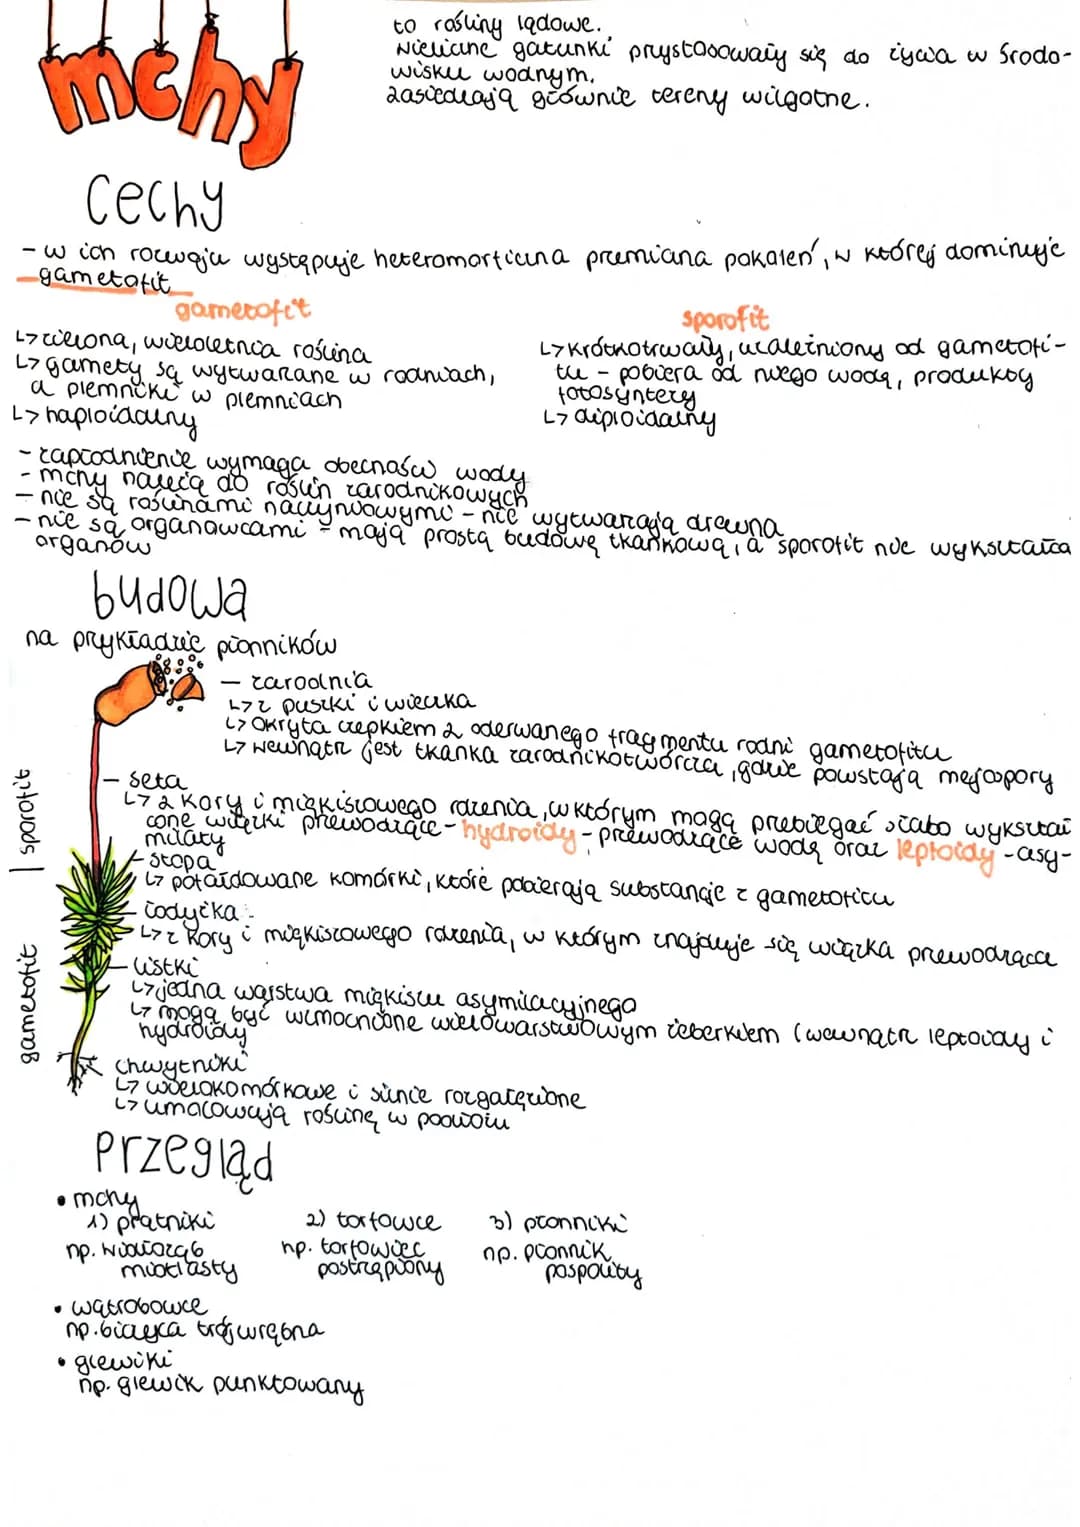 mchy
to rośliny lądowe.
Nieliczne gatunki przystosowały się do życia w środo-
wisku wodnym.
zasiedlają głównie tereny wilgotne.
Cechy
- w ich rozwoju występuje heteromorficzna przemiana pokoleń, w której dominuje
gametofit
gametofit
↳ zielona, wieloletnia roślina
↳ gamety są wytwarzane w rodniach,
a plemniki w plemniach
↳ haploidalny
sporofit
↳ krótkotrwały, uzależniony od gametofi-
tu - pobiera od niego wodę, produkty
fotosyntezy
↳ diploidalny
- zapłodnienie wymaga obecności wody
- mchy należą do roślin zarodnikowych
- nie są roślinami naczyniowymi - nie wytwarzają drewna
- nie są organowcami - mają prostą budowę tkankową, a sporofit nie wykształca
organów
budowa
na przykładzie płonników
- zarodnia
↳ z puszki i wieczka
↳ okryta czepkiem z oderwanego fragmentu rodni gametofitu
↳ wewnątrz jest tkanka zarodnikotwórcza, gdzie powstają mejospory
- seta
↳ z kory i miękiszowego rdzenia, w którym mogą przebiegać słabo wykształ
cone wiązki przewodzące - hydroidy - przewodzące wodę oraz leptoidy - asy-
milaty
- stopa
↳ pofałdowane komórki, które pobierają substancje z gametofitu
- łodyżka
↳ z kory i miękiszowego rdzenia, w którym znajduje się wiązka przewodząca
- listki
↳ jedna warstwa miękiszu asymilacyjnego
↳ mogą być wzmocnione wielowarstwowym żeberkiem (wewnątrz leptoidy i
hydroidy
chwytniki
↳ wielokomórkowe i silnie rozgałęzione
↳ umacowują roślinę w podłożu
sporofit
gametofit
przegląd
• mchy
1) prątniki
np. widłoząb
miotlasty
2) torfowce
np. torfowiec
postrzępiony
3) płonniki
np. płonnik
pospolity
• wątrobowce
np. biczyca trójwrębna
• glewiki
np. glewik punktowany